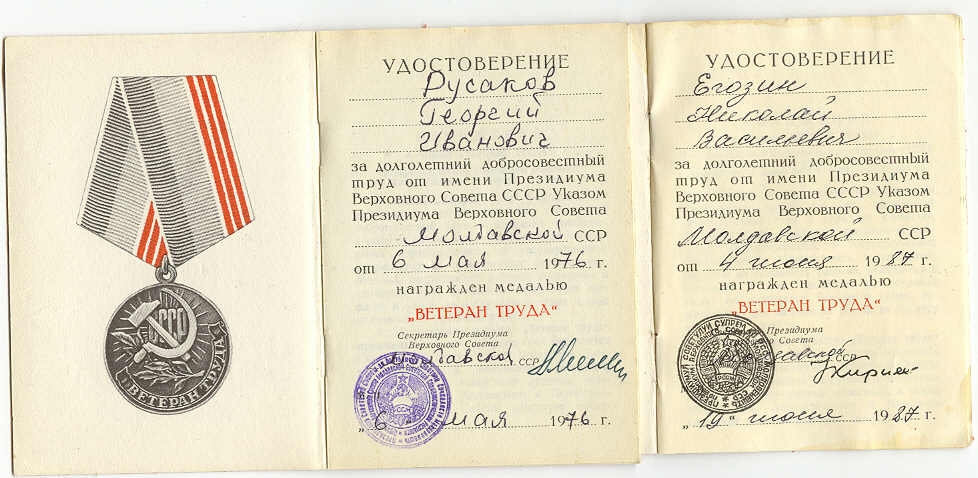 СССР
ВЕТЕРАН ТРУДА
УДОСТОВЕРЕНИЕ
Русаков
Георгий
Иванович
за долголетний добросовестный
труд от имени Президиума
Верховного Совета СССР Указом
Президиума Верховного Совета
Молдавской ССР
от 6 мая 1976 г.
награжден медалью
„ВЕТЕРАН ТРУДА“
Секретарь Президиума
Верховного Совета
Молдавской ССР
„6“ мая 1976 г.
УДОСТОВЕРЕНИЕ
Егозин
Николай
Васильевич
за долголетний добросовестный
труд от имени Президиума
Верховного Совета СССР Указом
Президиума Верховного Совета
Молдавской ССР
от 4 июня 1987 г.
награжден медалью
„ВЕТЕРАН ТРУДА“
Президиума
Совета
ССР
„19“ июня 1987 г.